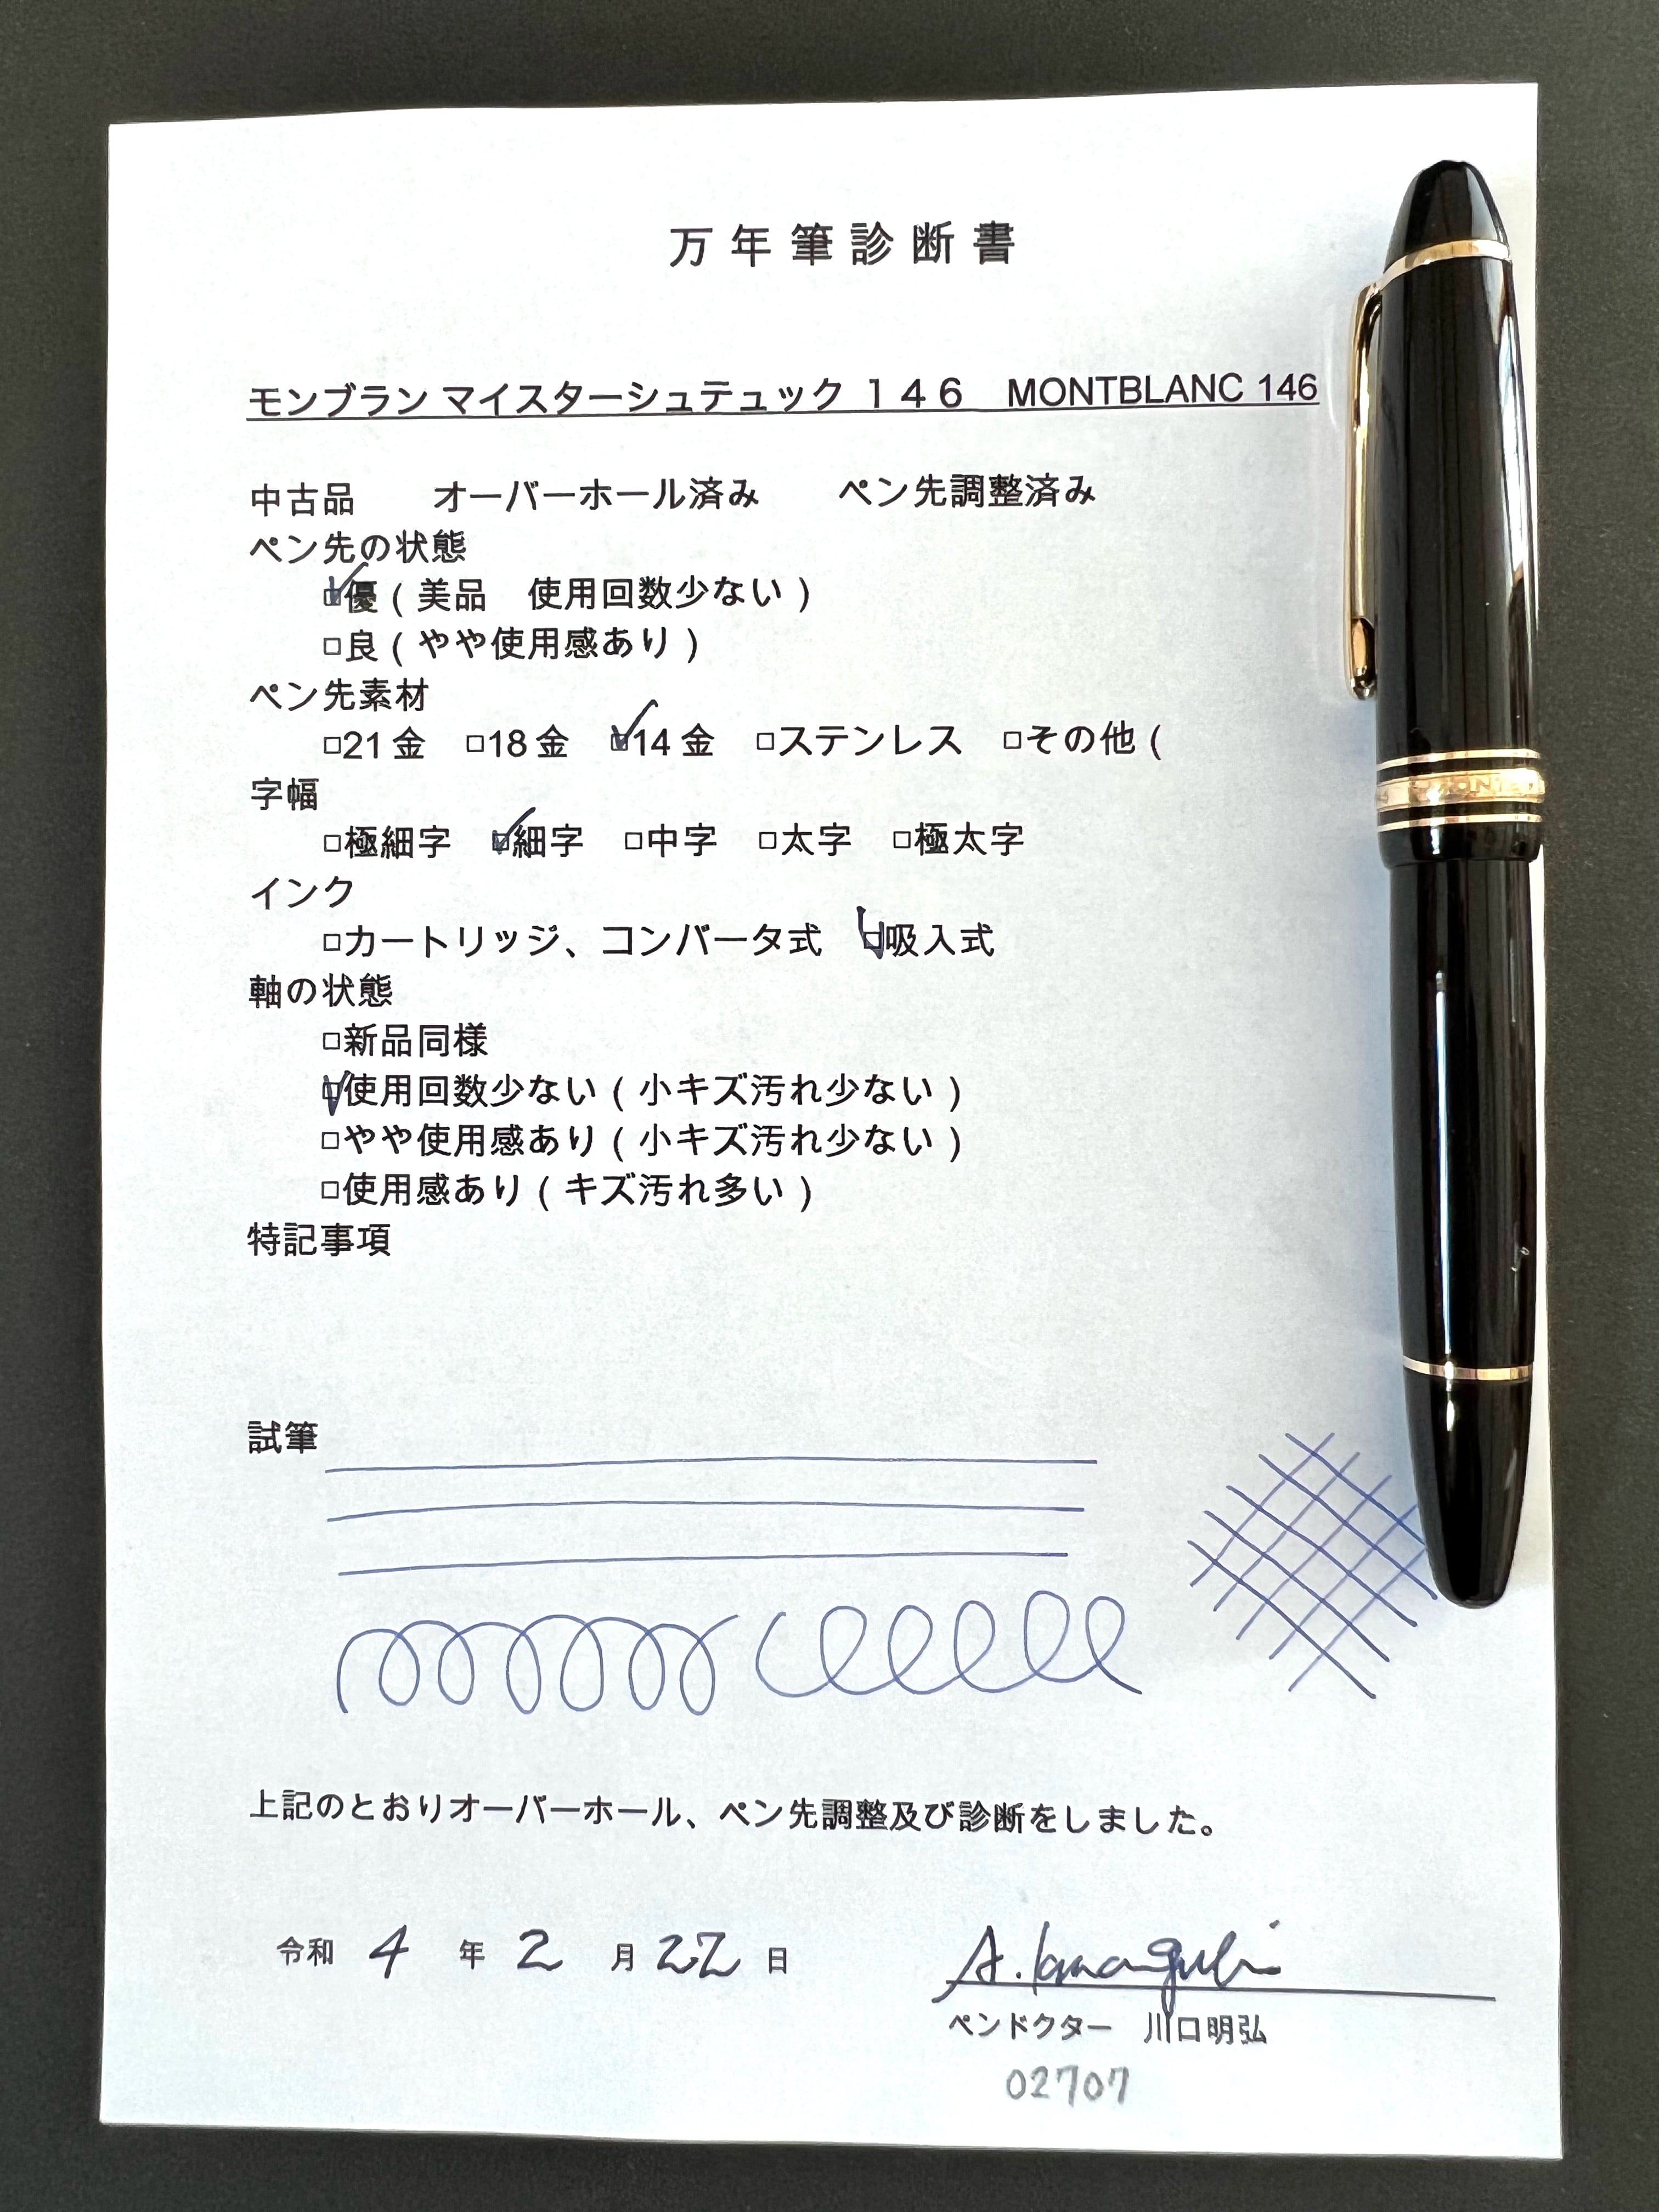 万年筆診断書
モンブラン マイスターシュテュック １４６　MONTBLANC 146
中古品　　オーバーホール済み　　ペン先調整済み
ペン先の状態
☑優（美品　使用回数少ない）
□良（やや使用感あり）
ペン先素材
□21金　□18金　☑14金　□ステンレス　□その他（
字幅
□極細字　☑細字　□中字　□太字　□極太字
インク
□カートリッジ、コンバータ式　☑吸入式
軸の状態
□新品同様
☑使用回数少ない（小キズ汚れ少ない）
□やや使用感あり（小キズ汚れ少ない）
□使用感あり（キズ汚れ多い）
特記事項
試筆
上記のとおりオーバーホール、ペン先調整及び診断をしました。
令和 4 年 2 月 22 日
ペンドクター　川口明弘
02707